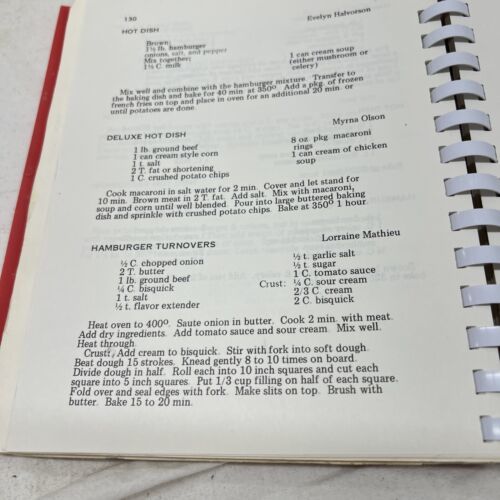 130
Evelyn Halvorson
HOT DISH
Brown:
1½ lb. hamburger
onions, salt, and pepper
Mix together:
1½ C. milk
1 can cream soup
(either mushroom or
celery)
Mix well and combine with the hamburger mixture. Transfer to
the baking dish and bake for 40 min. at 350º. Add a pkg. of frozen
french fries on top and place in oven for an additional 20 min. or
until potatoes are done.
Myrna Olson
DELUXE HOT DISH
1 lb. ground beef
1 can cream style corn
1 t. salt
2 T. fat or shortening
1 C. crushed potato chips
8 oz. pkg. macaroni
rings
1 can cream of chicken
soup
Cook macaroni in salt water for 2 min. Cover and let stand for
10 min. Brown meat in 2 T. fat. Add salt. Mix with macaroni,
soup and corn until well blended. Pour into large buttered baking
dish and sprinkle with crushed potato chips. Bake at 350º 1 hour.
Lorraine Mathieu
HAMBURGER TURNOVERS
½ C. chopped onion
2 T. butter
1 lb. ground beef
¼ C. bisquick
1 t. salt
½ t. flavor extender
½ t. garlic salt
½ t. sugar
1 C. tomato sauce
Crust: ¼ C. sour cream
2/3 C. cream
2 C. bisquick
Heat oven to 400º. Saute onion in butter. Cook 2 min. with meat.
Add dry ingredients. Add tomato sauce and sour cream. Mix well.
Heat through.
Crust: Add cream to bisquick. Stir with fork into soft dough.
Beat dough 15 strokes. Knead gently 8 to 10 times on board.
Divide dough in half. Roll each into 10 inch squares and cut each
square into 5 inch squares. Put 1/3 cup filling on half of each square.
Fold over and seal edges with fork. Make slits on top. Brush with
butter. Bake 15 to 20 min.